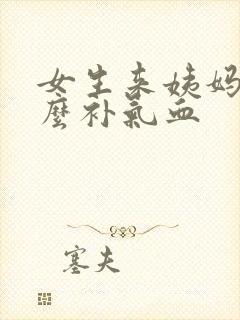 女生来姨妈
麼补氣血
塞夫